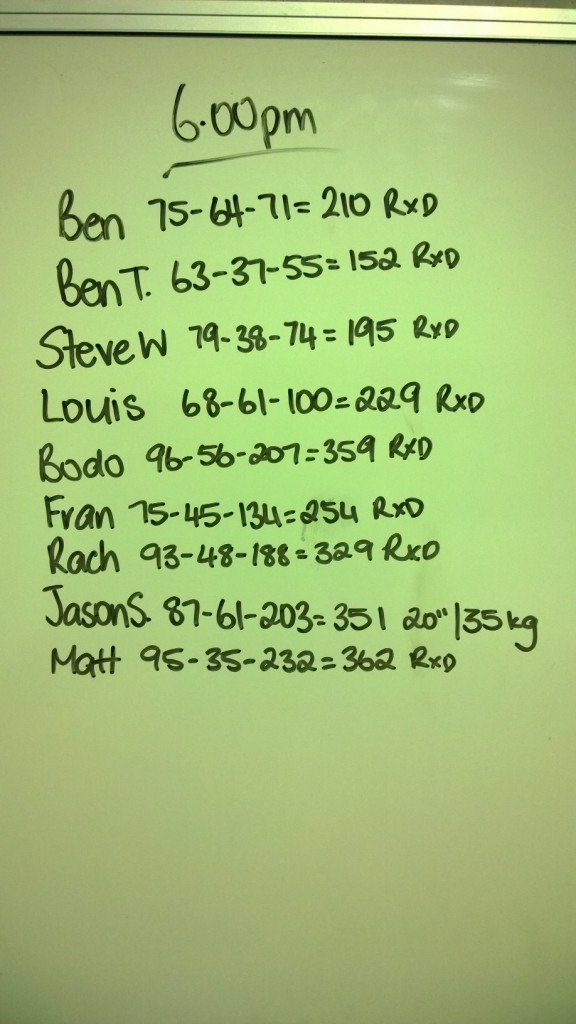 6.00pm
Ben 75-64-71= 210 RxD
Ben T. 63-37-55= 152 RxD
Steve W 79-38-74= 195 RxD
Louis 68-61-100=229 RxD
Bodo 96-56-207=359 RxD
Fran 75-45-134=254 RxD
Rach 93-48-188=329 RxD
Jason S. 87-61-203= 351 20"/35kg
Matt 95-35-232=362 RxD